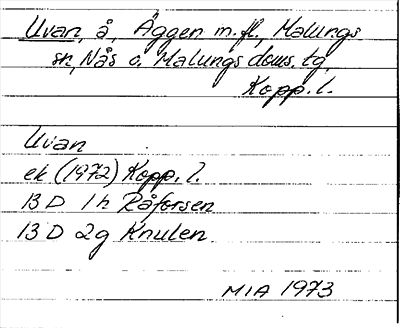 Uvan, å, Äggen m.fl., Malungs
sn, Nås o. Malungs doms. tg,
Kopp. l.
Uvan
ek (1972) Kopp. l.
13 D 1h Råforsen
13 D 2g Knulen
MIA 1973